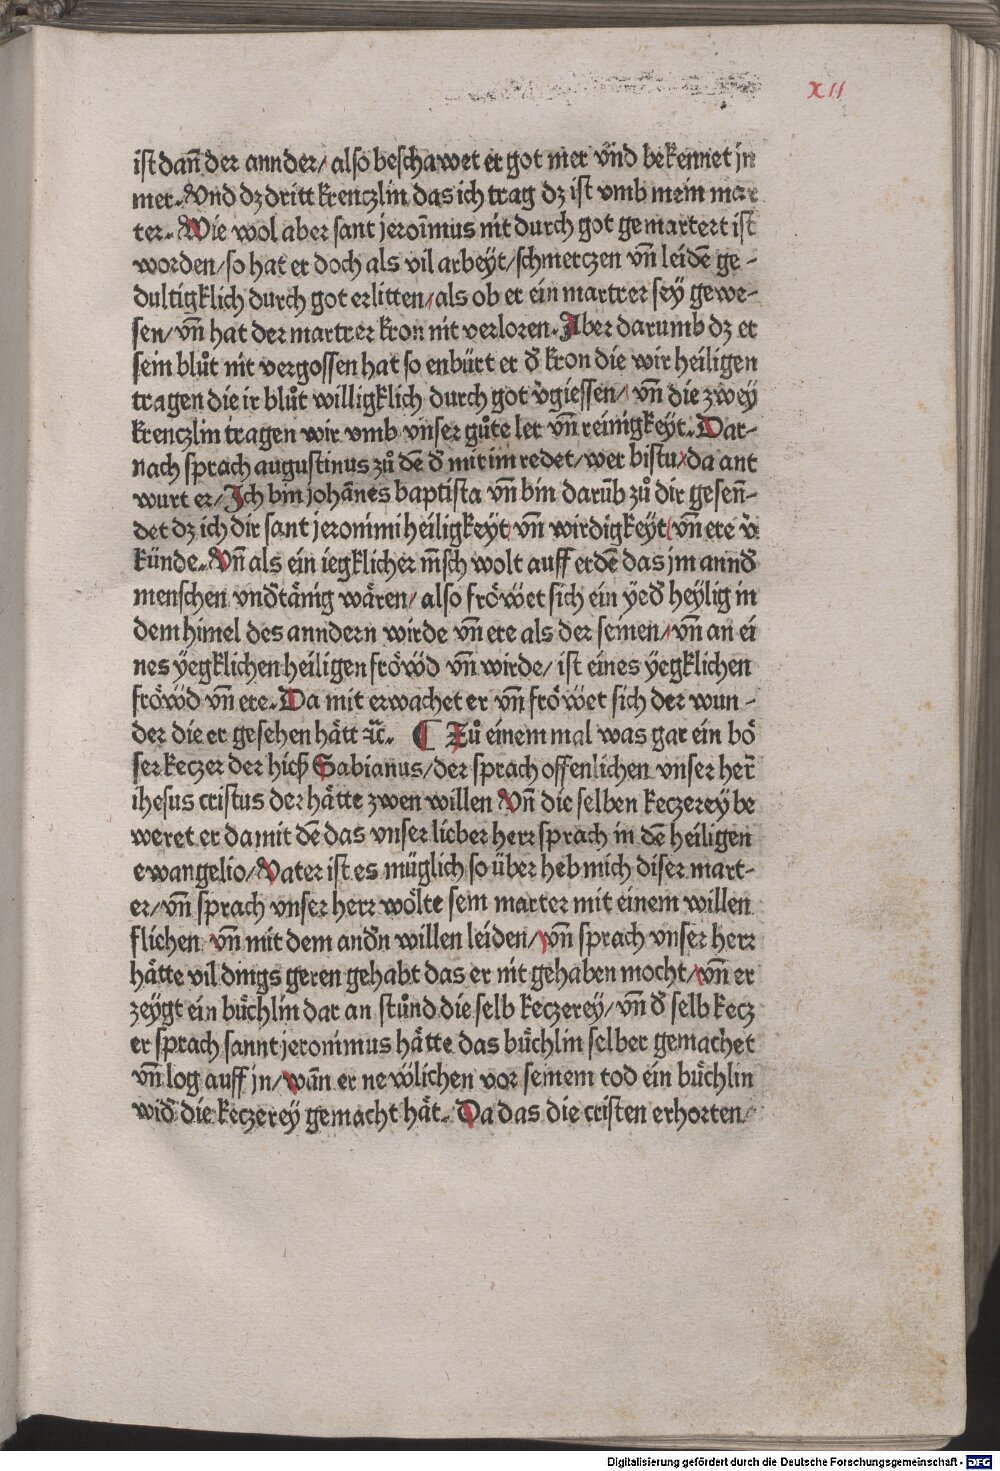 xII
ist dañ der annder/ also beschawet er got mer vnd bekennet jn
mer. Vnd dz dritt krenczlin das ich trag dz ist vmb mein mar
ter. Wie wol aber sant jeroĩmus nit durch got gemartert ist
worden/ so hat er doch als vil arbeyt/ schmerczen vñ leidẽ ge-
dultigklich durch got erlitten/ als ob er ein martrer sey gewe-
sen/ vñ hat der martrer kron nit verloren. Aber darumb dz er
sein blůt nit vergossen hat so enbürt er đ kron die wir heiligen
tragen die ir blůt willigklich durch got v̓giessen/ vñ die zwey
krenczlin tragen wir vmb vnser gůte ler vñ reinigkeyt. Dar-
nach sprach augustinus zů dẽ đ mit im redet/ wer bistu/ da ant
wurt er/ Ich bin johãnes baptista vñ bin darũb zů dir gesen̄-
det dz ich dir sant jeronimi heiligkeyt vñ wirdigkeyt/ vñ ere v̓
künde. Vñ als ein iegklicher m̃sch wolt auff erdẽ das jm annđ
menschen vnđtånig wåren/ also frőwet sich ein yeđ heylig in
dem himel des anndern wirde vñ ere als der seinen/ vñ an ei
nes yegklichen heiligen frőwd vñ wirde/ ist eines yegklichen
frőwd vñ ere. Da mit erwachet er vñ frőwet sich der wun-
der die er gesehen hått ꝛc̃. ¶ Zů einem mal was gar ein bő
ser keczer der hieß Sabianus/ der sprach offenlichen vnser her̃
ihesus cristus der håtte zwen willen Vñ die selben keczerey be
weret er da mit dẽ das vnser lieber herr sprach in dẽ heiligen
ewangelio/ Vater ist es müglich so über heb mich diser mart-
er/ vñ sprach vnser herr wőlte sein marter mit einem willen
fliehen vñ mit dem anđn willen leiden/ vñ sprach vnser herr
håtte vil dings geren gehabt das er nit gehaben mocht/ vñ er
zeygt ein büchlin dar an stůnd die selb keczerey/ vñ đ selb kecz
er sprach sannt jeronimus håtte das büchlin selber gemachet
vñ log auff jn/ wañ er newlichen vor seinem tod ein büchlin
wiđ die keczerey gemacht håt. Da das die cristen erhorten/
Digitalisierung gefördert durch die Deutsche Forschungsgemeinschaft - DFG